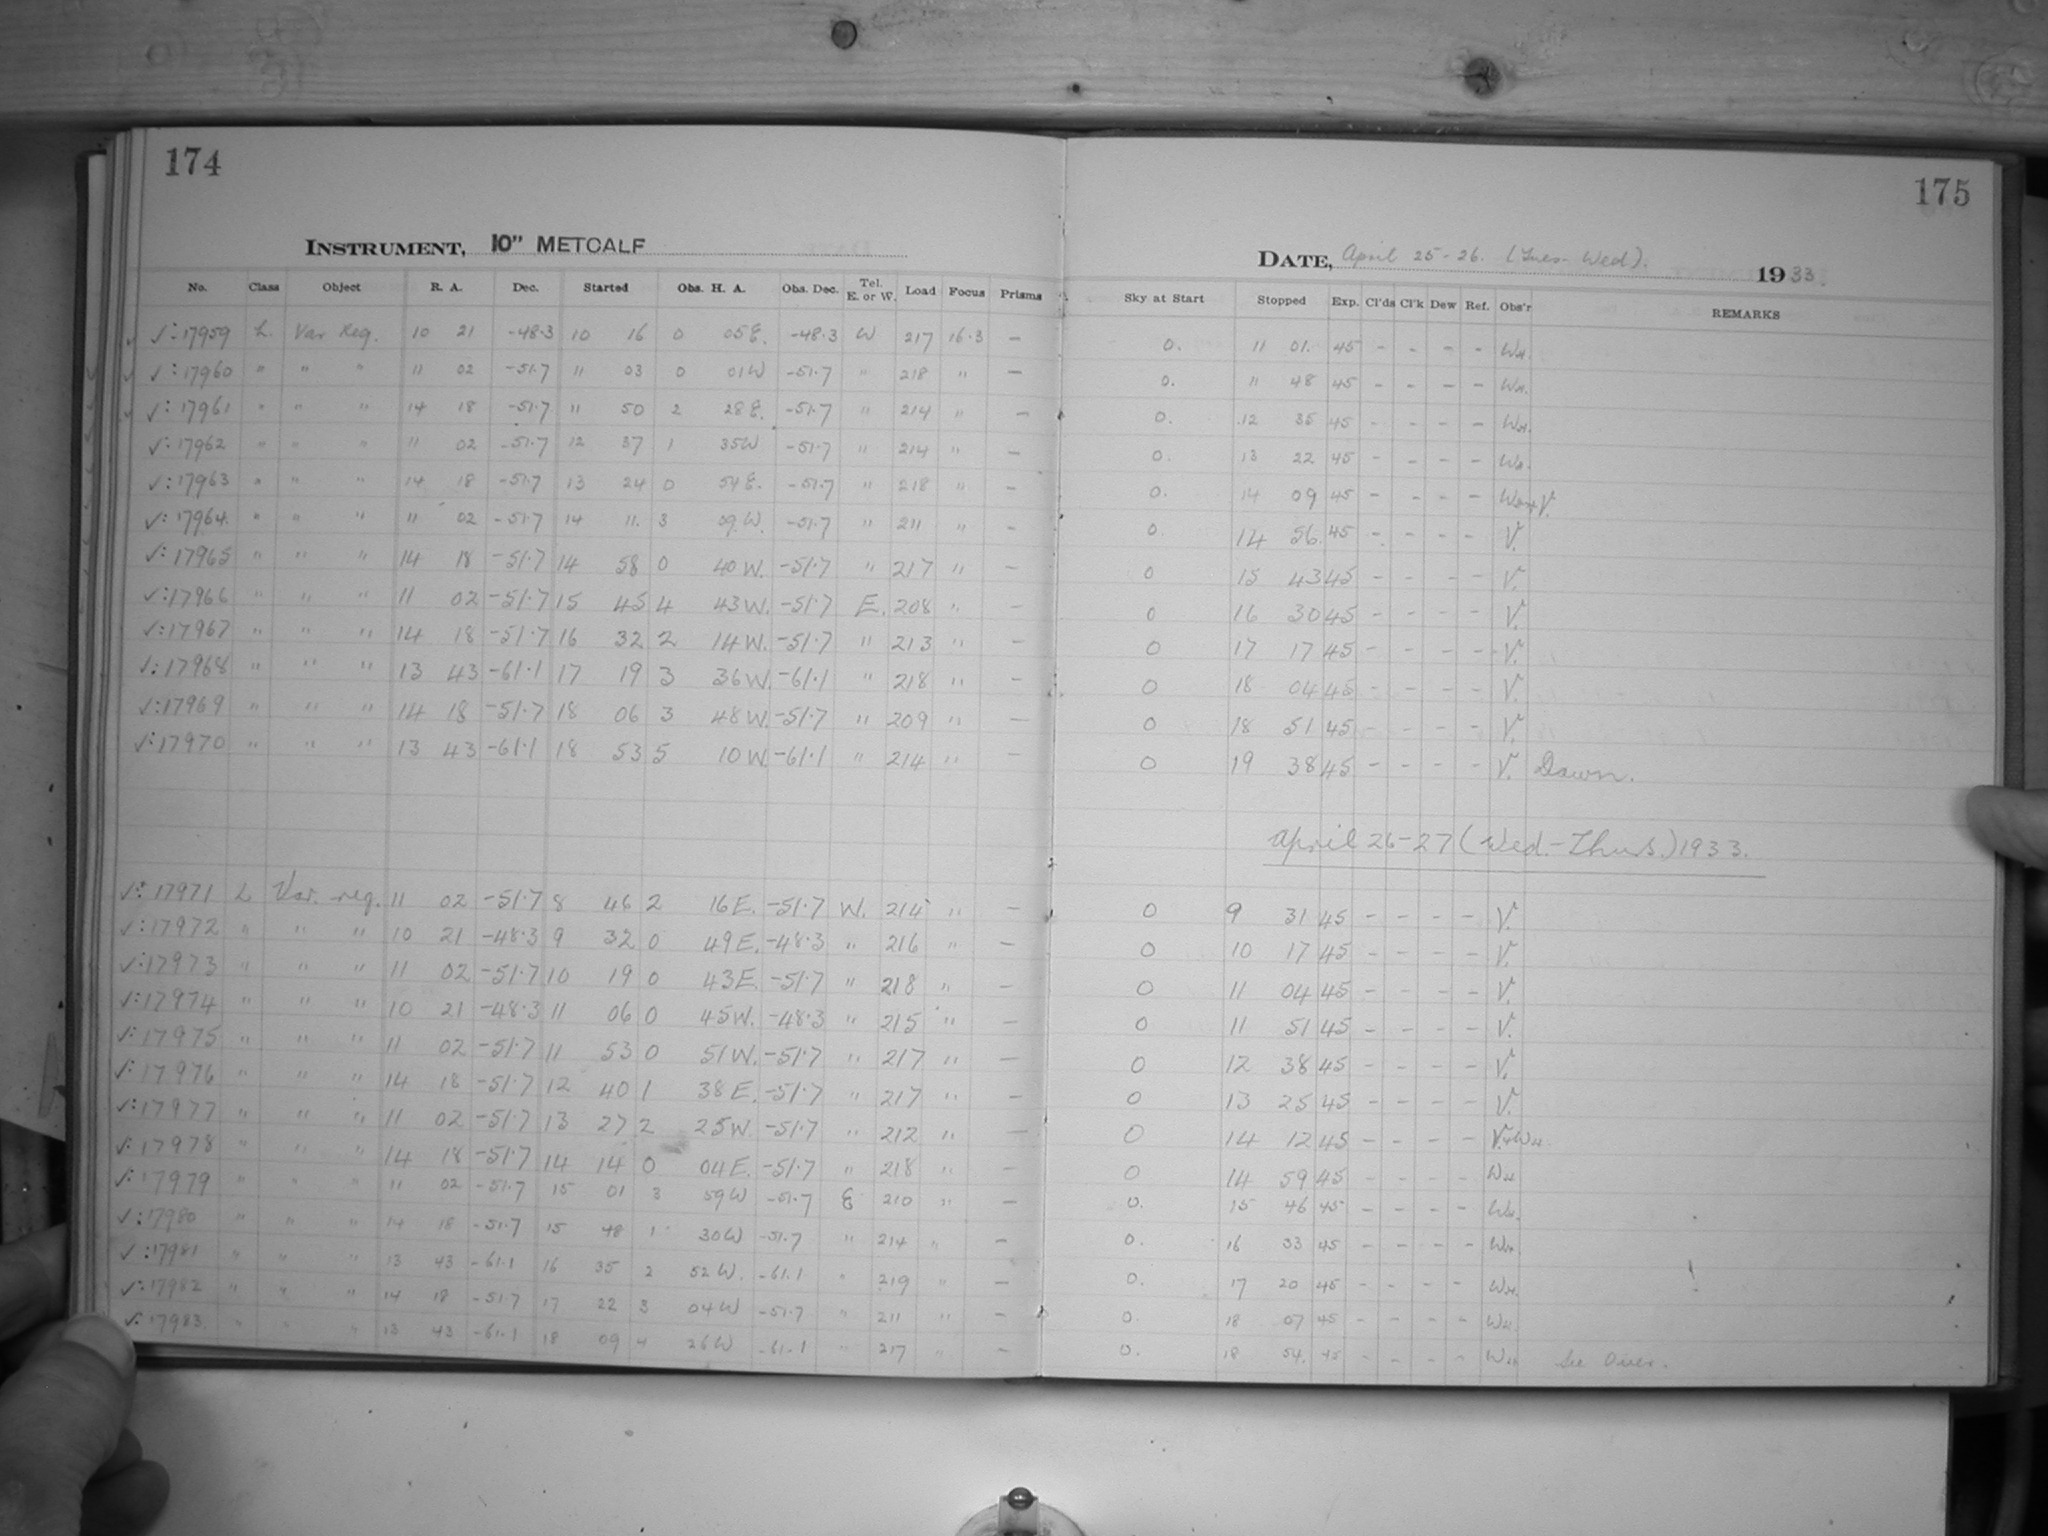 174
175
INSTRUMENT, 10" METCALF
DATE, April 25-26. (Tues-Wed). 1933.
No. Class Object R. A. Dec. Started Obs. H. A. Obs. Dec. Tel. E. or W. Load Focus Prisms Sky at Start Stopped Exp. Cl'ds Cl'k Dew Ref. Obs'r REMARKS
✓: 17959 L. Var Reg. 10 21 -48.3 10 16 0 05 E. -48.3 W 217 16.3 - 0. 11 01. 45 - - - - WH.
✓: 17960 " " " 11 02 -51.7 11 03 0 01 W -51.7 " 218 " - 0. 11 48 45 - - - - WH.
✓: 17961 " " " 14 18 -51.7 11 50 2 28 E. -51.7 " 214 " - 0. 12 35 45 - - - - WH.
✓: 17962 " " " 11 02 -51.7 12 37 1 35 W -51.7 " 214 " - 0. 13 22 45 - - - - WH.
✓: 17963 " " " 14 18 -51.7 13 24 0 54 E. -51.7 " 218 " - 0. 14 09 45 - - - - WH+V.
✓: 17964. " " " 11 02 -51.7 14 11. 3 09. W. -51.7 " 211 " - 0. 14 56. 45 - - - - V.
✓: 17965 " " " 14 18 -51.7 14 58 0 40 W. -51.7 " 217 " - 0 15 43 45 - - - - V.
✓: 17966 " " " 11 02 -51.7 15 45 4 43 W. -51.7 E. 208 " - 0 16 30 45 - - - - V.
✓: 17967 " " " 14 18 -51.7 16 32 2 14 W. -51.7 " 213 " - 0 17 17 45 - - - - V.
✓: 17968 " " " 13 43 -61.1 17 19 3 36 W. -61.1 " 218 " - 0 18 04 45 - - - - V.
✓: 17969 " " " 14 18 -51.7 18 06 3 48 W. -51.7 " 209 " - 0 18 51 45 - - - - V.
✓: 17970 " " " 13 43 -61.1 18 53 5 10 W. -61.1 " 214 " - 0 19 38 45 - - - - V. Dawn.
April 26-27 (Wed.-Thurs.) 1933.
✓: 17971 L Var. reg. 11 02 -51.7 8 46 2 16 E. -51.7 W. 214 " - 0 9 31 45 - - - - V.
✓: 17972 " " " 10 21 -48.3 9 32 0 49 E. -48.3 " 216 " - 0 10 17 45 - - - - V.
✓: 17973 " " " 11 02 -51.7 10 19 0 43 E. -51.7 " 218 " - 0 11 04 45 - - - - V.
✓: 17974 " " " 10 21 -48.3 11 06 0 45 W. -48.3 " 215 " - 0 11 51 45 - - - - V.
✓: 17975 " " " 11 02 -51.7 11 53 0 51 W. -51.7 " 217 " - 0 12 38 45 - - - - V.
✓: 17976 " " " 14 18 -51.7 12 40 1 38 E. -51.7 " 217 " - 0 13 25 45 - - - - V.
✓: 17977 " " " 11 02 -51.7 13 27 2 25 W. -51.7 " 212 " - 0 14 12 45 - - - - V.+WH.
✓: 17978 " " " 14 18 -51.7 14 14 0 04 E. -51.7 " 218 " - 0 14 59 45 - - - - WH.
✓: 17979 " " " 11 02 -51.7 15 01 3 59 W -51.7 E 210 " - 0. 15 46 45 - - - - WH.
✓: 17980 " " " 14 18 -51.7 15 48 1 30 W -51.7 " 214 " - 0. 16 33 45 - - - - WH.
✓: 17981 " " " 13 43 -61.1 16 35 2 52 W. -61.1 " 219 " - 0. 17 20 45 - - - - WH.
✓: 17982 " " " 14 18 -51.7 17 22 3 04 W -51.7 " 211 " - 0. 18 07 45 - - - - WH.
✓: 17983. " " " 13 43 -61.1 18 09 4 26 W -61.1 " 217 " - 0. 18 54. 45 - - - - WH See Over.